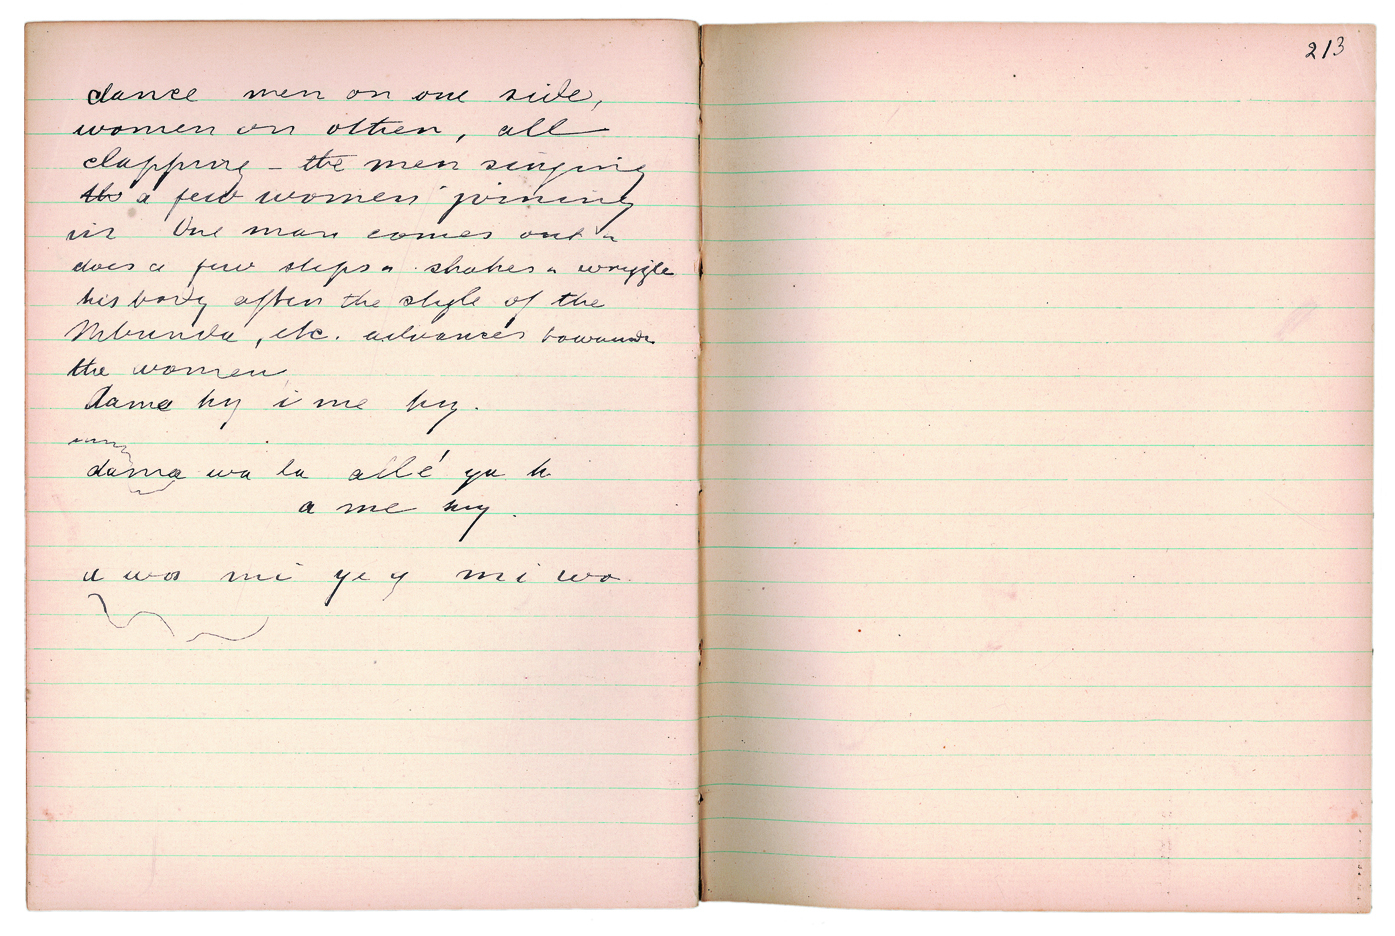 dance men on one side,
women on other, all
clapping - the men singing
a few women joining
in One man comes out
does a few steps shakes wriggle
his body after the style of the
Mbunda, etc. advances towards
the women
dama hy i me hy.
dama wa la allé ya h
a me hy.
a wa mi ye y mi wo
213